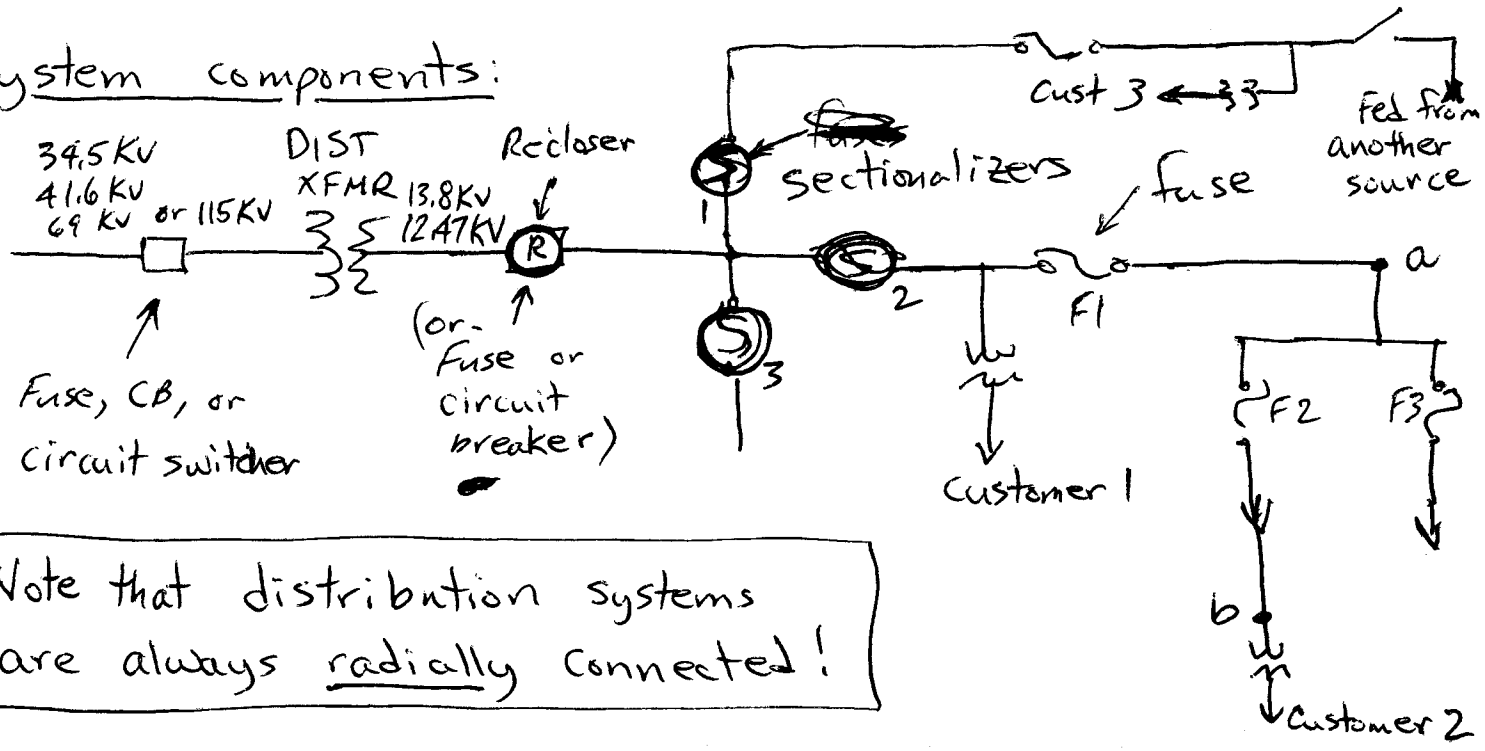 ystem components:
34.5 KV
41.6 KV
69 KV or 115KV
DIST
XFMR
13.8KV
12.47KV
Recloser
R
(or
Fuse or
circuit
breaker)
Fuse, CB, or
circuit switcher
S
1
sectionalizers
S
2
S
3
fuse
F1
a
Cust 3
Fed from
another
source
Customer 1
F2
F3
b
Customer 2
Note that distribution systems
are always radially connected!